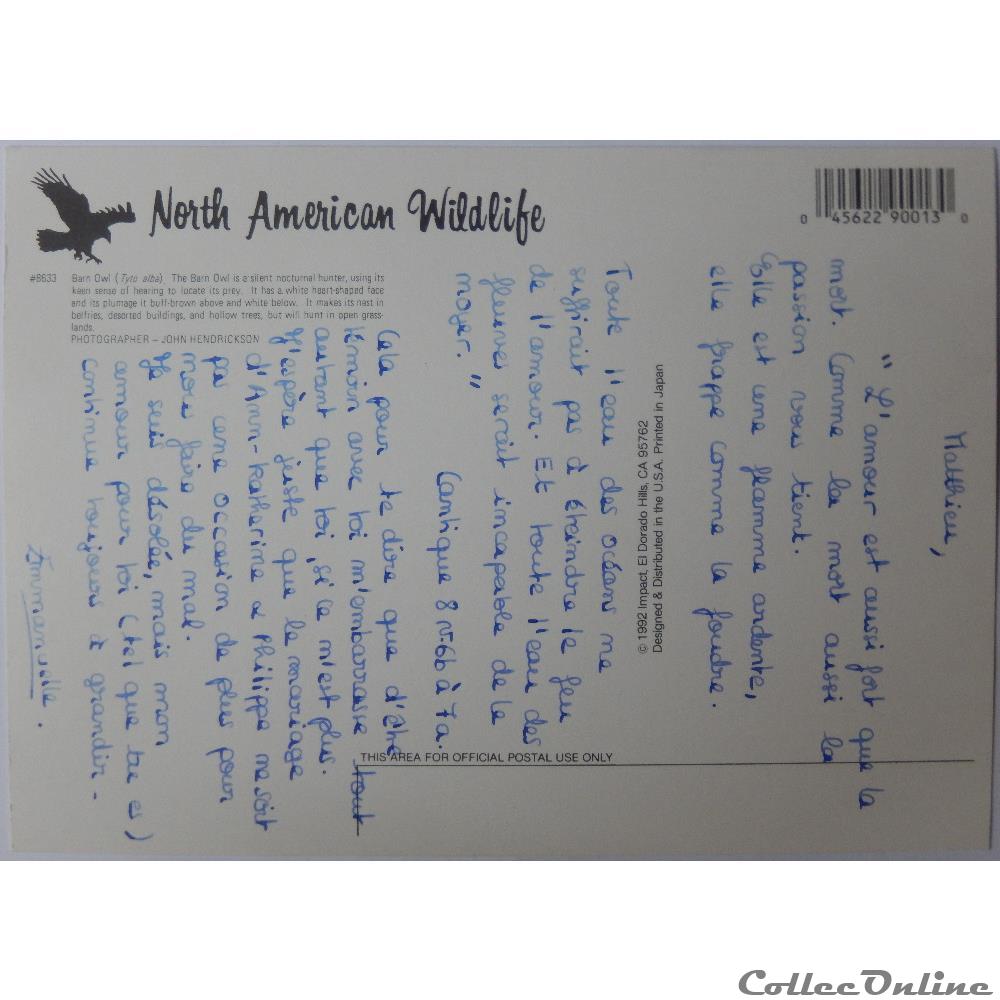 North American Wildlife
0 45622 90013 0
#8633 Barn Owl (Tyto alba) The Barn Owl is a silent nocturnal hunter, using its
keen sense of hearing to locate its prey. It has a white heart-shaped face
and its plumage it buff-brown above and white below. It makes its nest in
belfries, desorted buildings, and hollow trees, but will hunt in open grass-
lands.
PHOTOGRAPHER – JOHN HENDRICKSON
Matthieu,
"L'amour est aussi fort que la
mort. Comme la mort aussi la
passion vous tient.
Elle est une flamme ardente,
elle frappe comme la foudre.
Toute l'eau des océans ne
suffirait pas à éteindre le feu
de l'amour. Et toute l'eau des
fleuves serait incapable de le
noyer."
Cantique 8 v. 6b à 7a.
Cela pour te dire que d'être
témoin avec toi m'embarrasse tout
autant que toi, si le n'est plus.
J'espère juste que le mariage
d'Ann-Katherine & Philippe ne soit
pas une occasion de plus pour
nous faire du mal.
Je suis désolée, mais mon
amour pour toi (tel que tu es)
continue toujours à grandir -
Emmanuelle.
© 1992 Impact, El Dorado Hills, CA 95762
Designed & Distributed in the U.S.A. Printed in Japan
THIS AREA FOR OFFICIAL POSTAL USE ONLY
CollecOnline